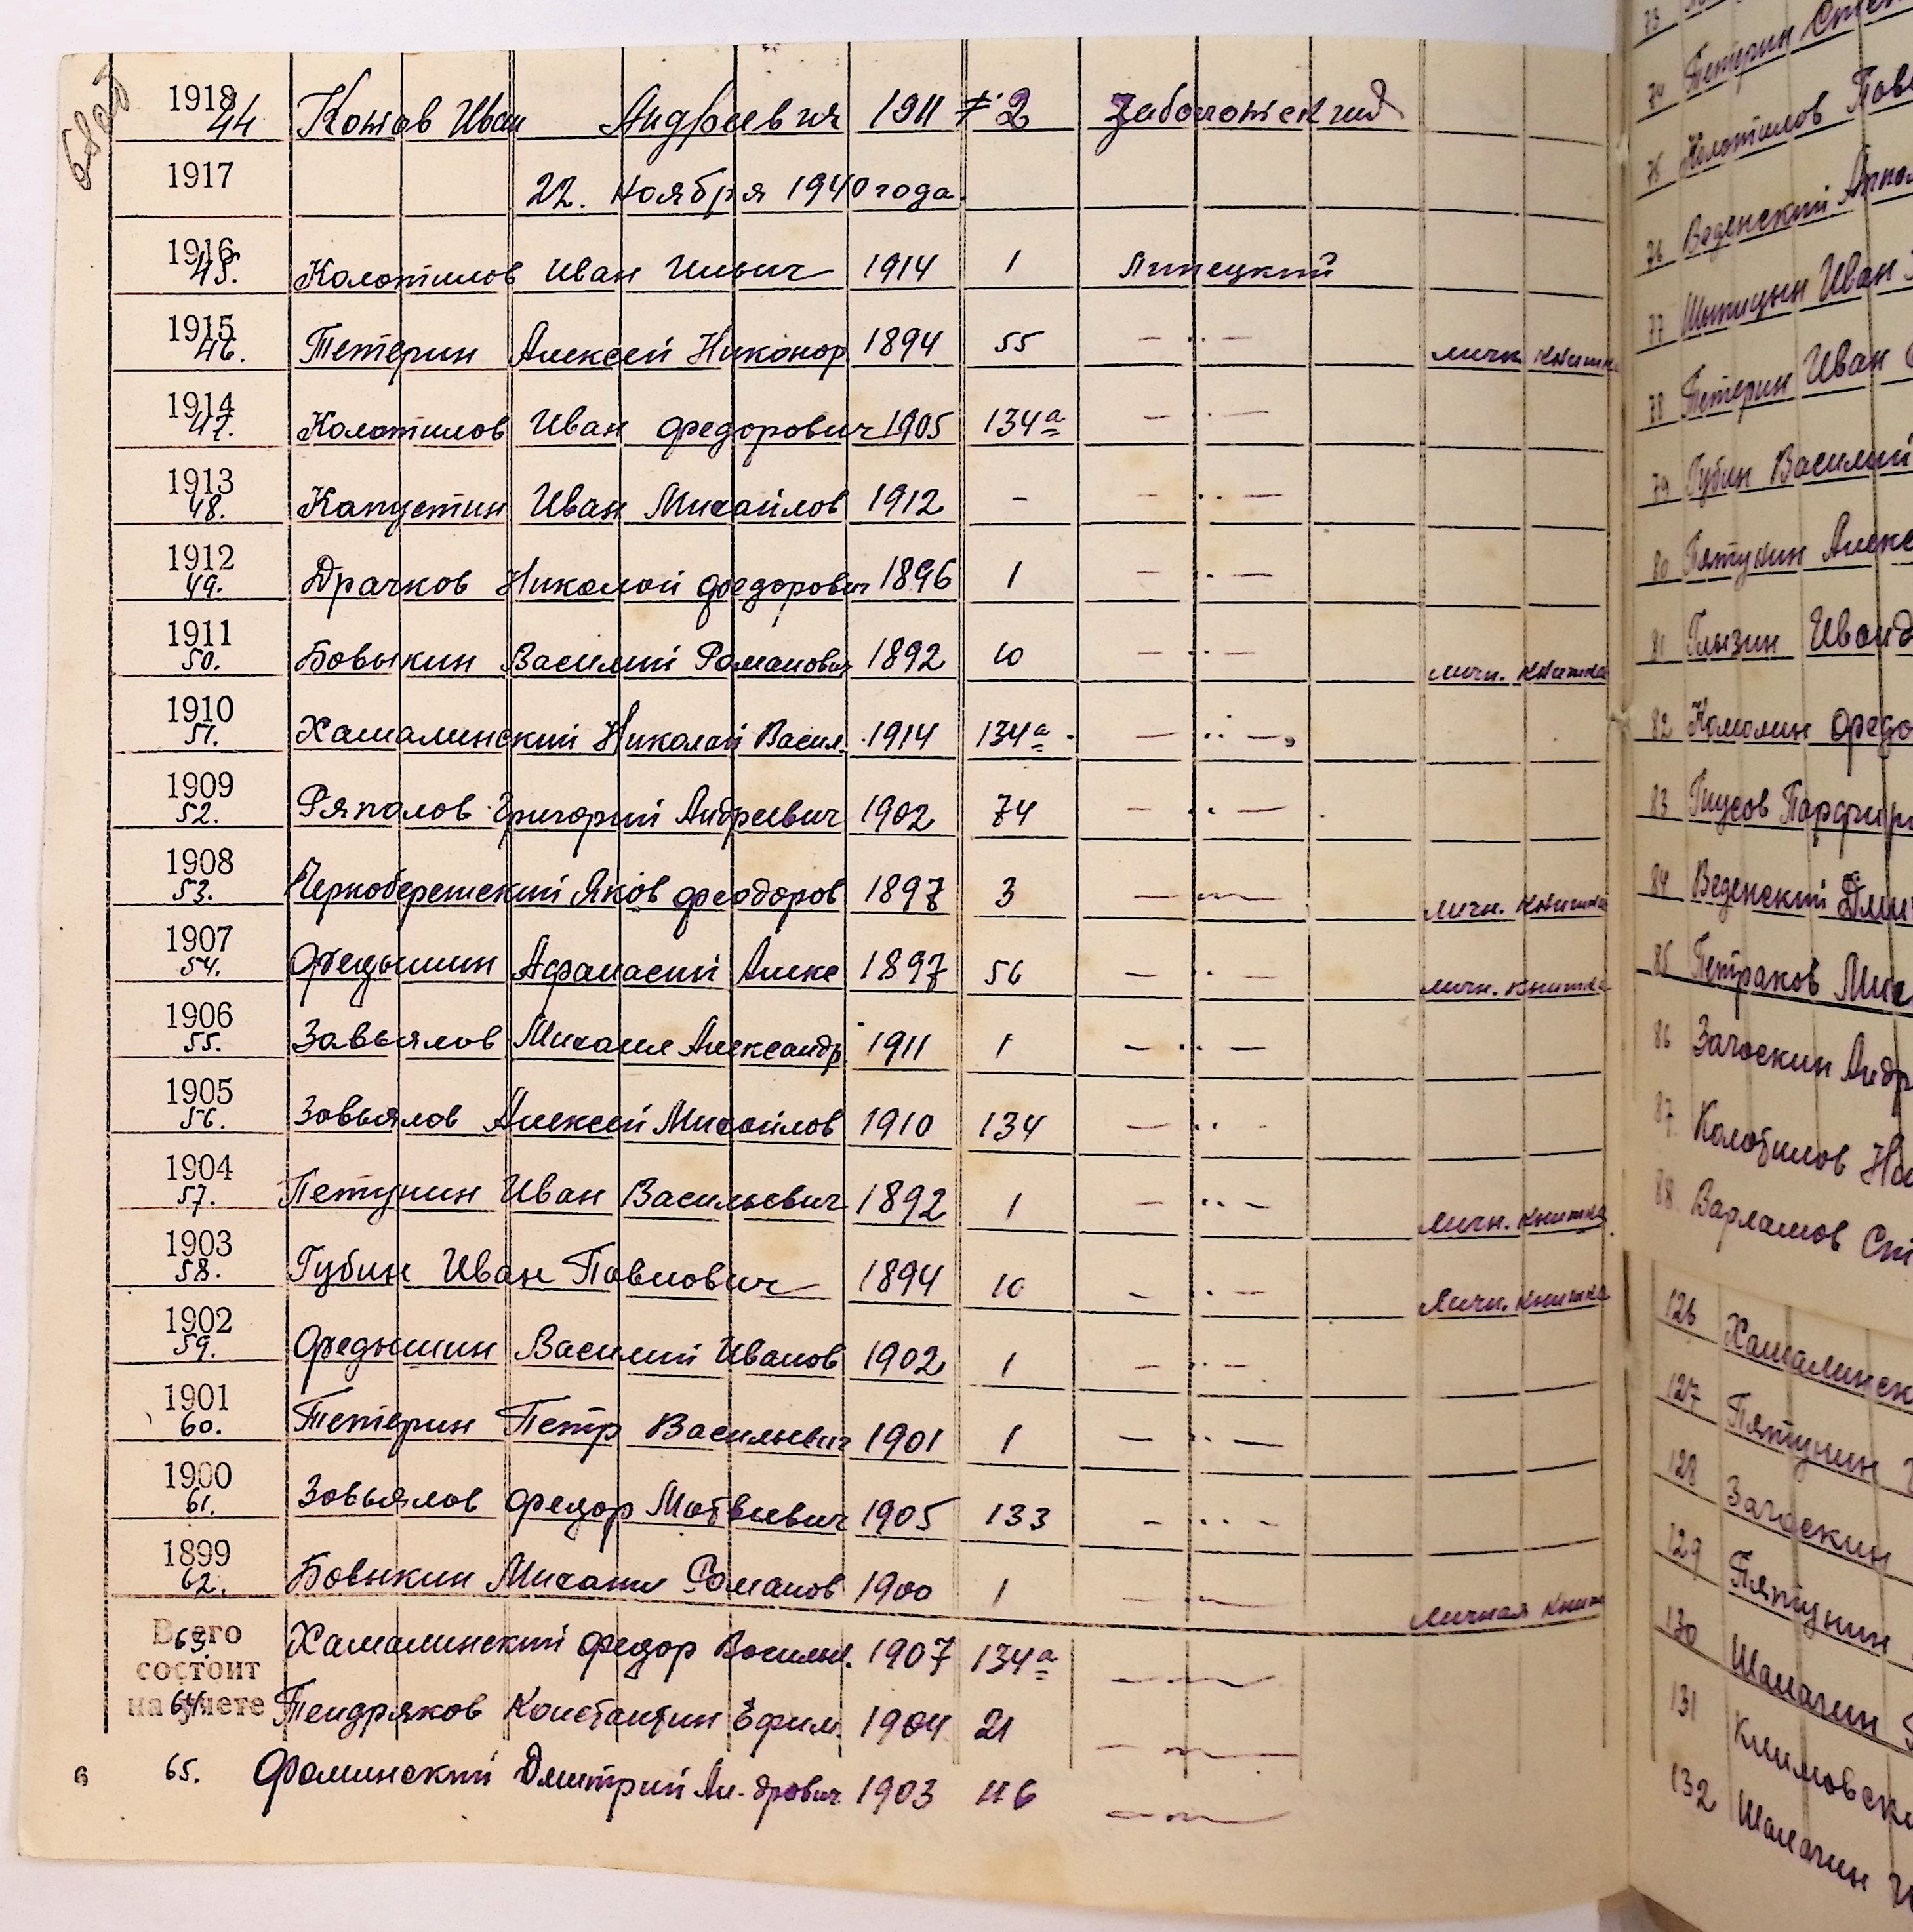 1918 44 Котов Иван Андреевич 1911 2
1917 22. Ноября 1940 года.
1916 45. Колотилов Иван Ильич 1914 1 Липецкий
1915 46. Тетерин Алексей Никонор 1894 55 — · · — личн. книжка
1914 47. Колотилов Иван Федорович 1905 134а — · —
1913 48. Капустин Иван Михайлов 1912 - — · · —
1912 49. Драчков Николай Федорович 1896 1 — · —
1911 50. Бовыкин Василий Романович 1892 10 — · — личн. книжка
1910 51. Хамалинский Николай Васил. 1914 134а — · · —
1909 52. Ряполов Григорий Андреевич 1902 74 — · · —
1908 53. Яков Феодоров 1897 3 — · — личн. книжка
1907 54. Федышин Афанасий Алекс 1897 56 — · — личн. книжка
1906 55. Завьялов Михаил Александр. 1911 1 — · · —
1905 56. Завьялов Алексей Михайлов 1910 134 — · · -
1904 57. Петунин Иван Васильевич 1892 1 — · · — личн. книжка
1903 58. Губин Иван Павлович 1894 10 — · — личн. книжка
1902 59. Федышин Василий Иванов 1902 1 — · —
1901 60. Тетерин Петр Васильевич 1901 1 — · · —
1900 61. Завьялов Федор Матвеевич 1905 133 — · · · -
1899 62. Бовыкин Михаил Романов 1900 1 — · — личная книж
Всего состоит на учете
63. Хамалинский Федор Васильев. 1907 134а
64. Тендряков Константин Ефим. 1904 21
6 65. Фоминский Дмитрий Ан-дрович 1903 116
73
74 Тетерин
75 Колотилов Пав
76 Веденский
77 Шипицын Иван
78 Тетерин Иван
79 Губин Василий
80 Пятунин Алекс
81 Глызин Иван
82 Федо
83 Гнусов Парфир
84 Веденский Дми
85 Петраков Мих
86 Загоскин Андр
87. Колотилов
88. Варламов Ст
126 Хамалинск
127 Пятунин
128 Загоскин
129 Пятунин
130 Шамагин
131 Климовск
132 Шамагин